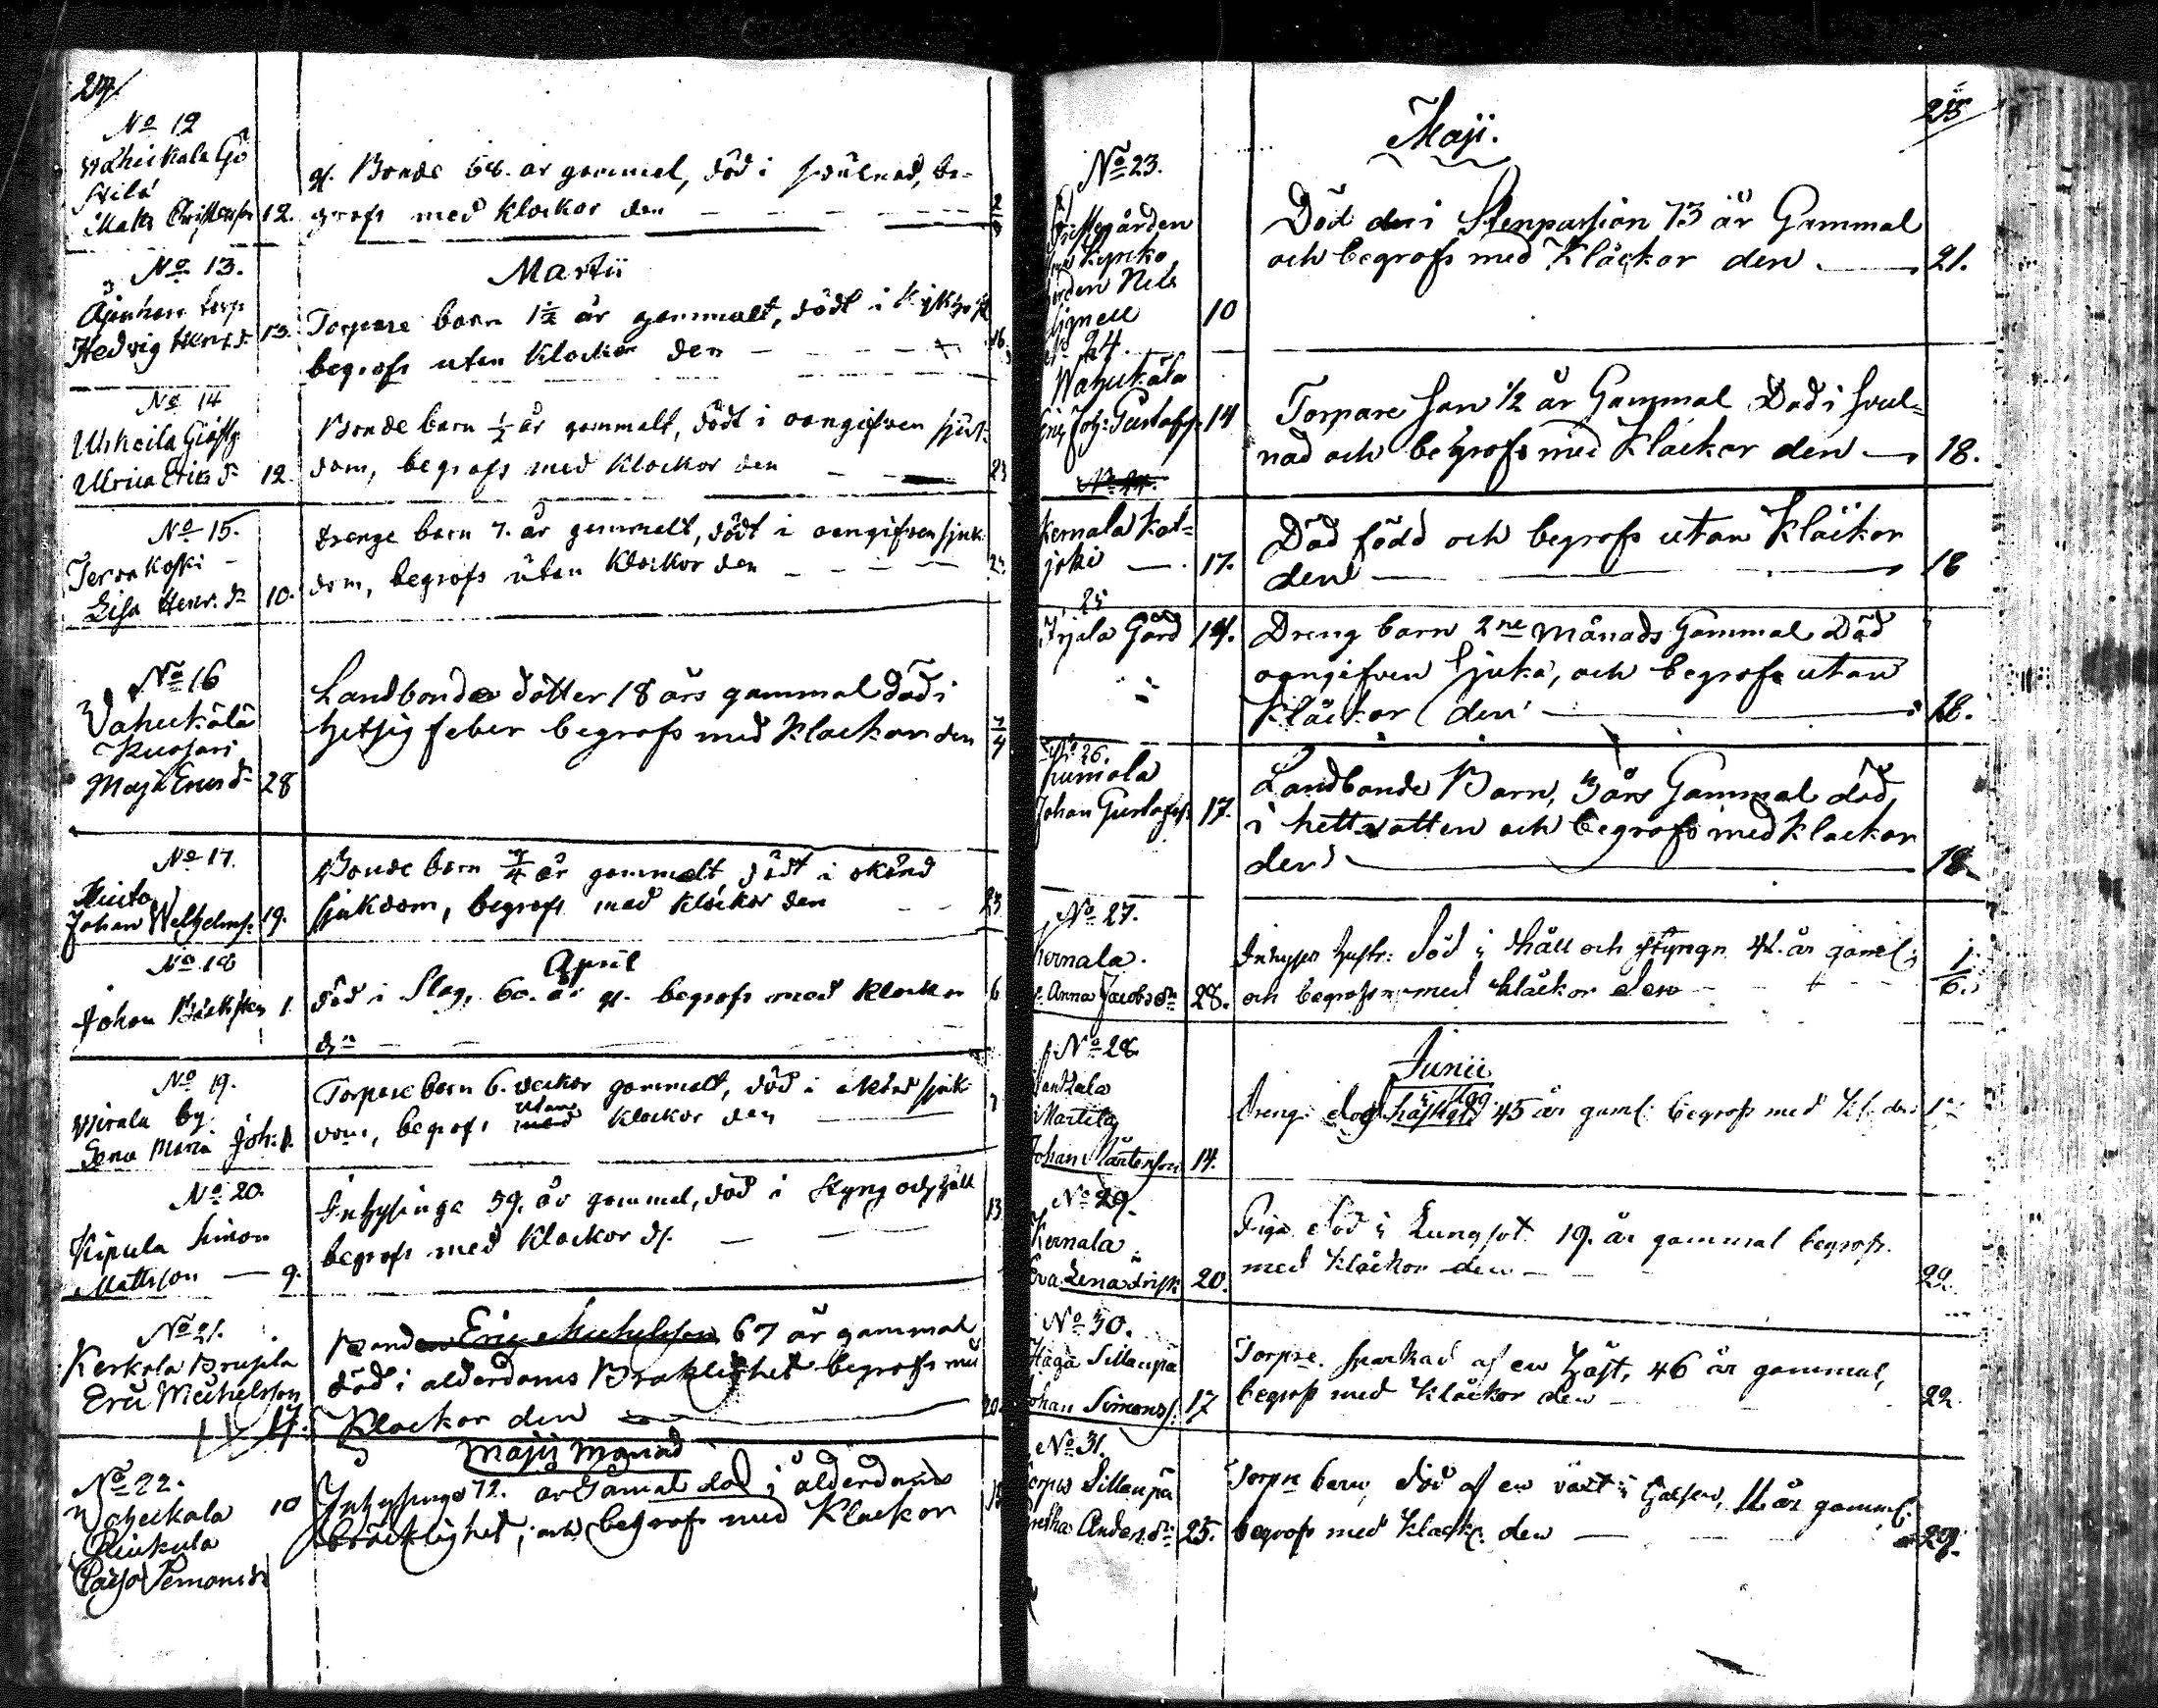 214
No 12
Waheikala Gö
Hilä
Matts Christersson 12.
gl. Bonde 68. år gammal, död i svulnad, be-
grofs med klockor den 2/3
No 13.
Martii
torp
Hedvig Henr. dr 13.
Torpare barn 1 1/2 år gammalt, dödt i kikhosta
begrofs utan klockor den 16
No 14
Uhkoila
Ulrica Eriks dr 12.
Bonde barn 1/2 år gammalt, dödt i oangifven sjuk-
dom, begrofs med klockor den 23
No 15.
Tervakoski
Lisa Henr. dr 10.
drenge barn 7. år gammalt, dödt i oangifven sjuk-
dom, begrofs utan klockor den
No 16
Vahukälä
Maja 28
Landbonde dotter 18 års gammal död i
hetsig feber begrofs med klockor den 1/4
No 17.
Johan Welhelms. 19.
Bonde barn 3/4 år gammalt dödt i okänd
sjukdom, begrofs med klockor den 23
No 18
April
Johan 1.
död i Slag, 60. år gl. begrofs med klockor 6
dn
No 19.
Wirala by
Maria Joh. d.
Torpare barn 6. veckor gammalt, död i okänd sjuk-
dom, begrofs med utan klockor den 7
No 20.
Kipula Simon
Mattsson 9.
Inhysinge 59. år gammal, död i styng och håll 13
begrofs med klockor d.
No 21.
Kerkola
Eric Michelsson
17.
Bonden Eric Michelsson 67 år gammal
död i alderdoms Bräklighet begrofs med
Klockor den 20
Maji Månad
No 22.
Waheikala 10
Inhysinge 72. år Gamal död i ålderdoms
bräcklighet, och begrofs med Klockor
215
Maji.
No 23.
Prestegården
Nils
Lignell 10
Död den i Stenpassion 73 år Gammal
och begrofs med Kläckor den 21.
No 24.
Wahukälä
Eric Joh: Gustafs. 14
Torpare son 1/2 år Gammal Död i svul-
nad och begrofs med Kläckor den 18.
No 24.
Kernala Kol-
joki 17.
Död född och begrofs utan Kläckor
den 18
25
Irjala Gård 14.
Dreng barn 2ne Månads Gammal Död
oangifven sjuka, och begrofs utan
Kläckor den 28.
No 26.
Humola
Johan Gustafss. 17.
Landbonde Barn, 3 års Gammal död,
i hett vatten och begrofs med klockor
den 18.
No 27.
Kernala.
Anna Jacobs dr 28.
Inhyses hustr: död i håll och styngn 42. år gamel;
och begrofs med kläckor den 1/6.
No 28.
Junii
Martila
Johan Mårtensson 14.
dreng dog 45 år gaml: begrofs med kl: den 1
No 29.
Kernala
Eva Lena 20.
Piga död i Lungsot 19. år gammal begrofs.
med kläckor den 29.
No 30.
Haga Sillanpä
Johan Simonss. 17
Torpre. sparkad af en häst, 46 år gammal,
begrofs med kläckor den 22.
No 31.
Torpus Sillanpä
Anders dr 25.
Torpre barn, död af en växt i halsen, 11. år gamml.
begrofs med klock: den 29.